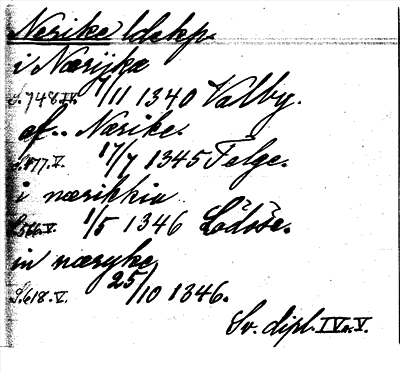 Nerike ldskp.
i Nærijkæ
S. 748. IV. 1/11 1340 Valby.
af.. Nærike.
S. 477. V. 17/7 1345 Telge.
i nærikkiu
S. 566. V. 1/5 1346 Lödöse.
in næryke
S. 618. V. 25/10 1346.
Sv. dipl. IV o. V.